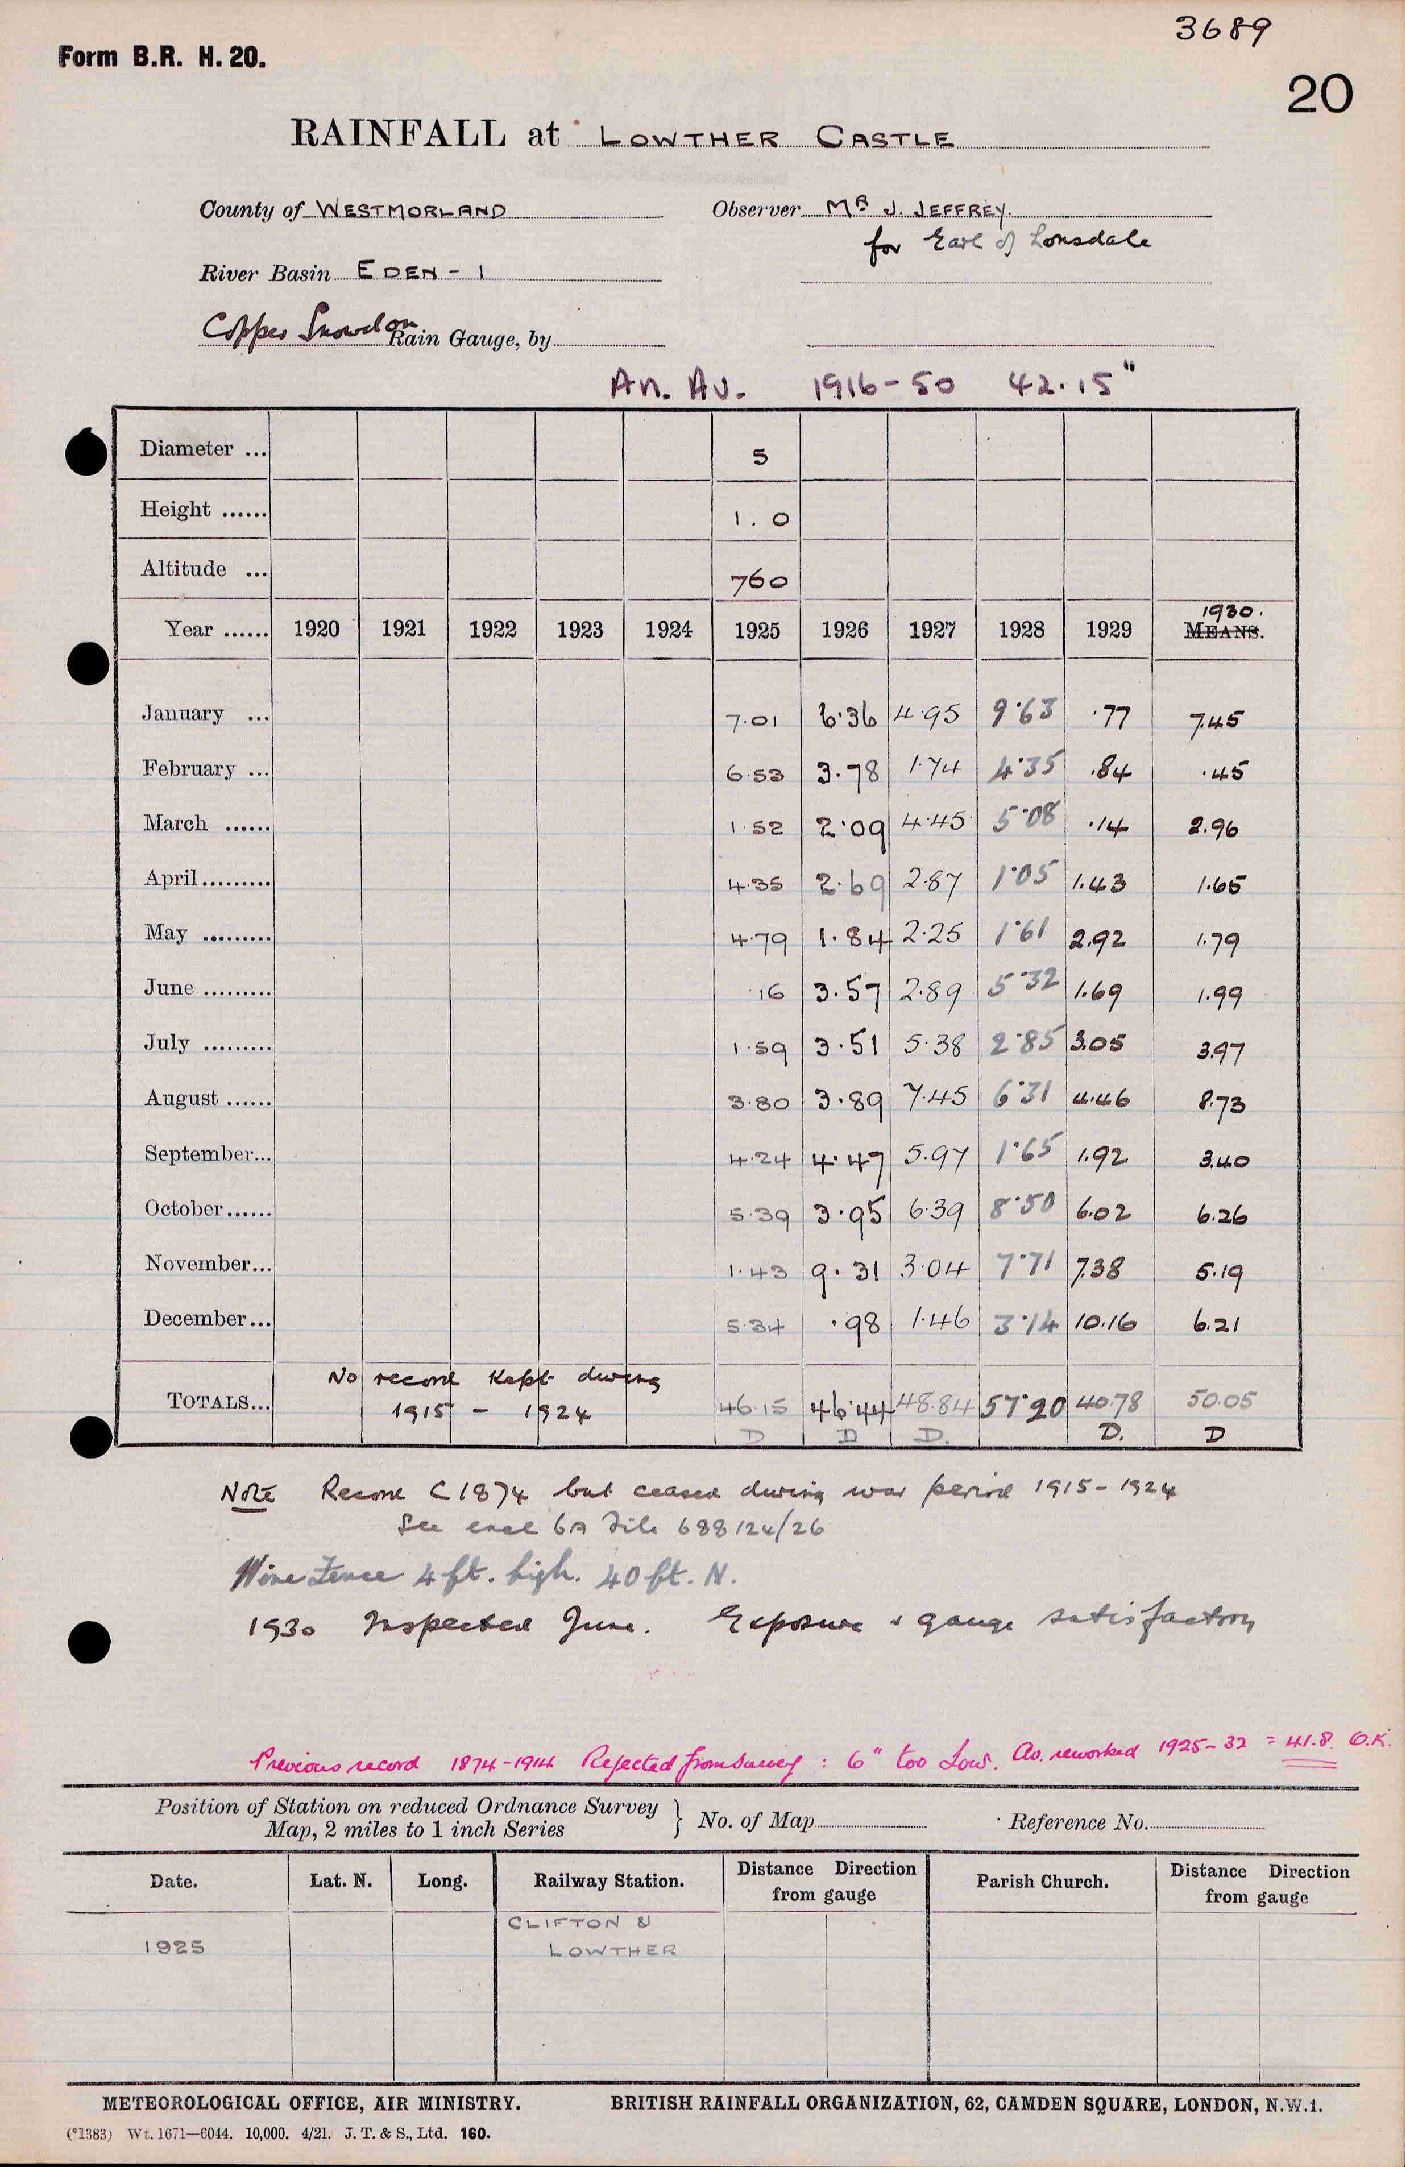 3689
Form B.R. H. 20.
20
RAINFALL at LOWTHER CASTLE
County of WESTMORLAND Observer MR J. JEFFREY.
for Earl of Lonsdale
River Basin EDEN - 1
Copper Snowdon Rain Gauge, by
An. Av. 1916-50 42.15"
Diameter ... 5
Height ...... 1.0
Altitude ... 760
1930.
Year ...... 1920 1921 1922 1923 1924 1925 1926 1927 1928 1929 MEANS.
January ... 7.01 6.36 4.95 9.63 .77 7.45
February ... 6.53 3.78 1.74 4.35 .84 .45
March ...... 1.52 2.09 4.45 5.08 .14 2.96
April ......... 4.35 2.69 2.87 1.05 1.43 1.65
May ......... 4.79 1.84 2.25 1.61 2.92 1.79
June ......... .16 3.57 2.89 5.32 1.69 1.99
July ......... 1.59 3.51 5.38 2.85 3.05 3.97
August ...... 3.80 3.89 7.45 6.31 4.46 8.73
September... 4.24 4.47 5.97 1.65 1.92 3.40
October ...... 5.39 3.95 6.39 8.50 6.02 6.26
November... 1.43 9.31 3.04 7.71 7.38 5.19
December... 5.34 .98 1.46 3.14 10.16 6.21
No record kept during
TOTALS... 1915 - 1924 46.15 46.44 48.84 57.20 40.78 50.05
D D D. D. D
NOTE Record C 1874 but ceased during war period 1915-1924
See encl 6A File 688124/26
Wire Fence 4 ft. high. 40 ft. N.
1930 Inspected June. Exposure & gauge satisfactory
Previous record 1874-1914 Rejected from Survey : 6" too Low. Av. reworked 1925-32 = 41.8. O.K.
Position of Station on reduced Ordnance Survey
Map, 2 miles to 1 inch Series } No. of Map Reference No.
Date. Lat. N. Long. Railway Station. Distance Direction from gauge Parish Church. Distance Direction from gauge
CLIFTON &
1925 LOWTHER
METEOROLOGICAL OFFICE, AIR MINISTRY. BRITISH RAINFALL ORGANIZATION, 62, CAMDEN SQUARE, LONDON, N.W.1.
(*1383) Wt. 1671—6044. 10,000. 4/21. J. T. & S., Ltd. 160.